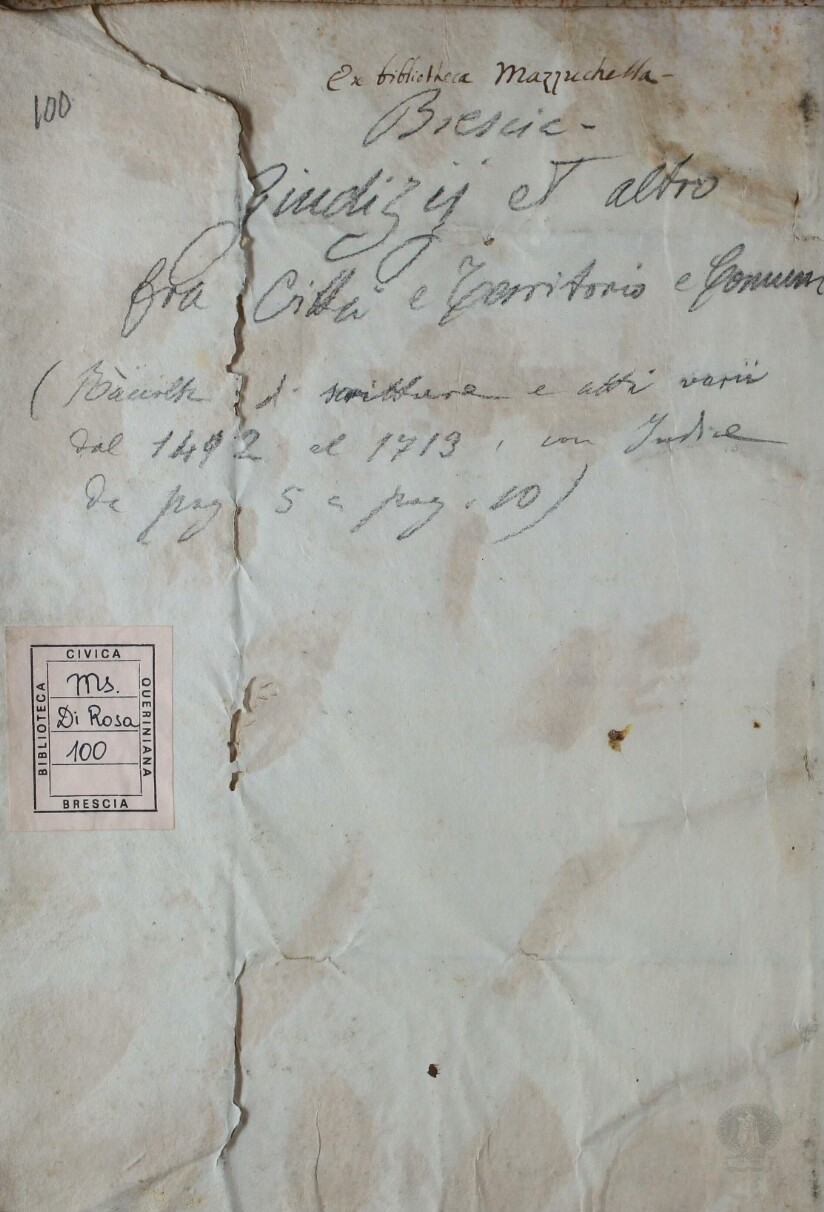 Ex bibliotheca Mazzuchella-
100
Brescia-
Giudizij et altro
fra Città e Territorio e Comuni
(Raccolta di scritture e atti varii
dal 1492 al 1713, con Indice
da pag. 5 a pag. 10)
CIVICA
BIBLIOTECA
QUERINIANA
Ms.
Di Rosa
100
BRESCIA